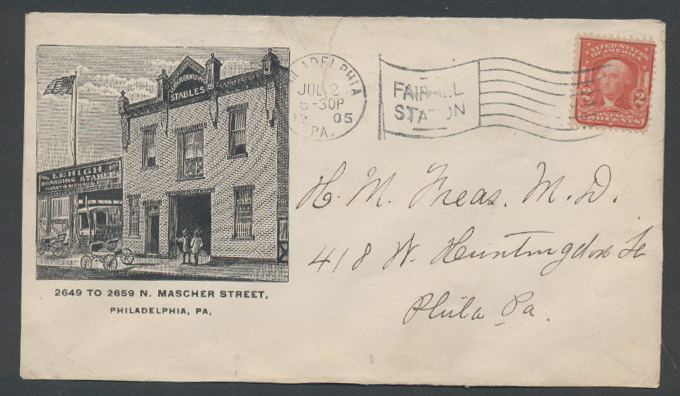 STABLES
LEHIGH
BOARDING STABLES
2649 TO 2659 N. MASCHER STREET,
PHILADELPHIA, PA.
PHILADELPHIA
JUL 2
6-30P
05
PA.
FAIRHILL
STATION
UNITED STATES
OF AMERICA
2 2
TWO CENTS
H. M. Freas. M. D.
418 W. Huntingdon St
Phila Pa.